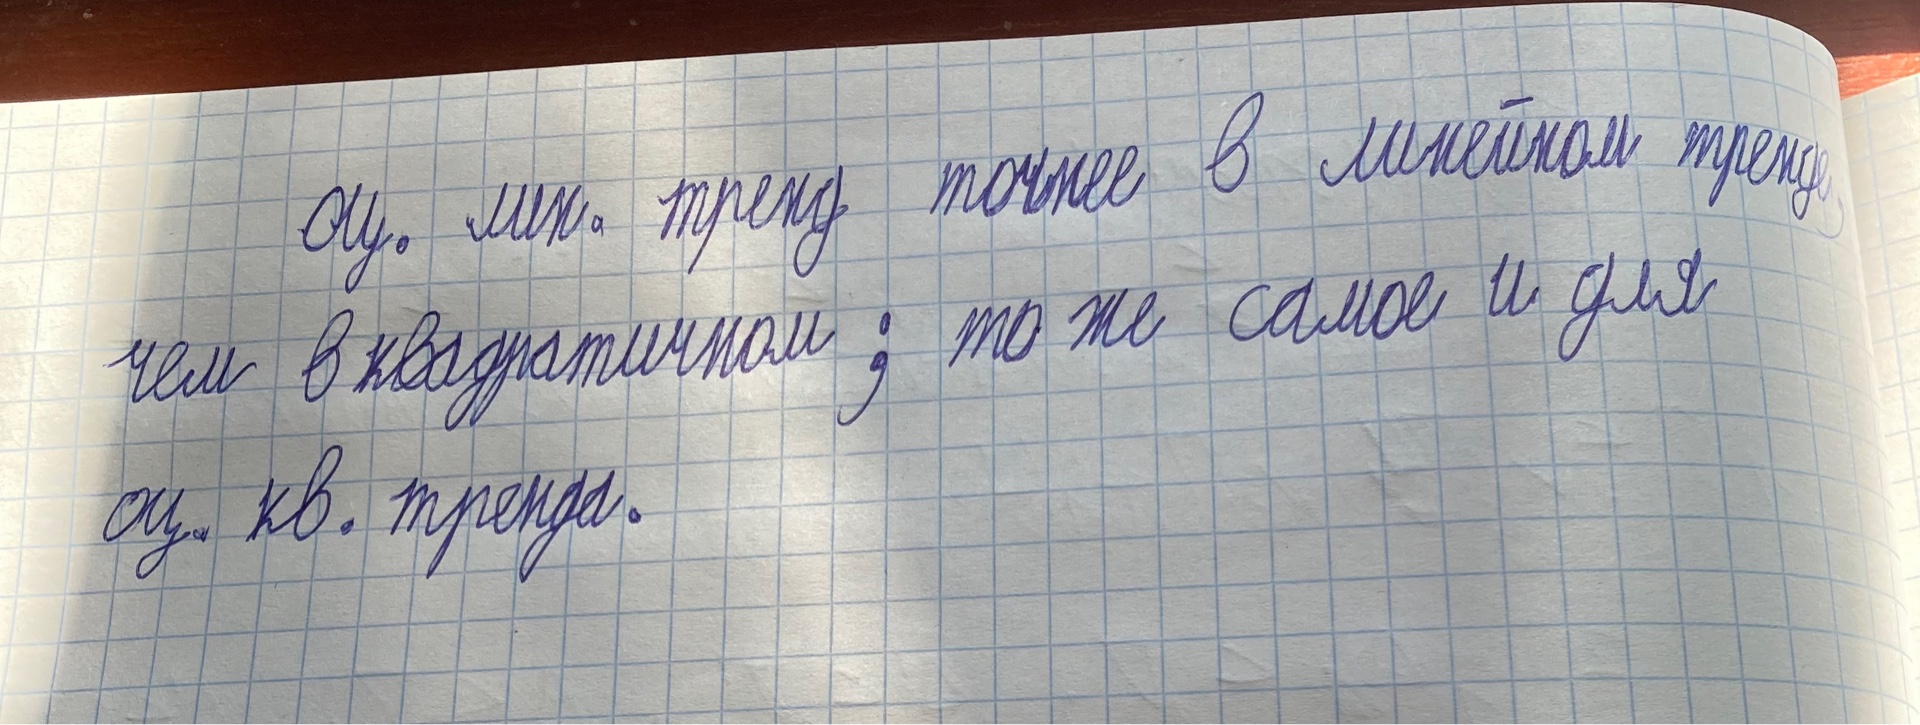 оц. лин. тренд точнее в линейном тренде,
чем в квадратичном; то же самое и для
оц. кв. тренда.